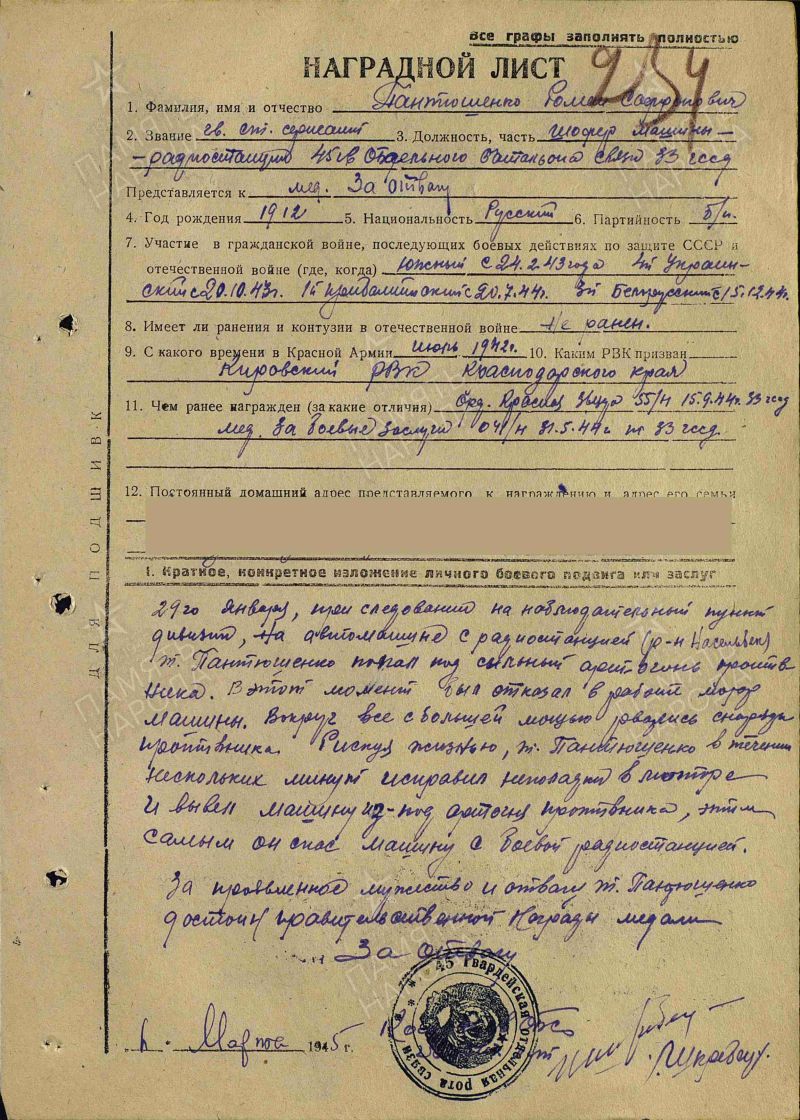 Все графы заполнять полностью
НАГРАДНОЙ ЛИСТ
1. Фамилия, имя и отчество Пантюшенко Роман Софронович
2. Звание гв. ст. сержант 3. Должность, часть шофер машины-
-радиостанции 45гв Отдельного батальона связи 33 гссд
Представляется к мед. За отвагу
4. Год рождения 1912 5. Национальность Русский 6. Партийность б/п.
7. Участие в гражданской войне, последующих боевых действиях по защите СССР и
отечественной войне (где, когда) Южный с 24.2.43 года 4й Украин-
ский с 20.10.43г. 1й Прибалтийский с 20.7.44г. 3й Белорусский с 15.12.44г.
8. Имеет ли ранения и контузии в отечественной войне не ранен.
9. С какого времени в Красной Армии 1942г. 10. Каким РВК призван
Кировский РВК Краснодарского края
11. Чем ранее награжден (за какие отличия) Орд. Красная Звезда 55/н 15.9.44г. 33 гссд
мед. За боевые заслуги 041/н 31.5.44г. 33 гссд.
12. Постоянный домашний адрес представляемого к награждению и адрес его семьи
ДЛЯ ПОДШИВК
I. Краткое, конкретное изложение личного боевого подвига или заслуг
29го января, при следовании на наблюдательный пункт
дивизии, на автомашине с радиостанцией (р-н
т. Пантюшенко попал под сильный артогонь против
ника. В этот момент был отказал в работе мотор
машины. Вокруг все с большей мощью рвались снаряды
противника. Рискуя жизнью, т. Пантюшенко в течении
нескольких минут исправил неполадки в моторе
и вывел машину из-под артогня противника, этим
самым он спас машину с боевой радиостанцией.
За проявленное мужество и отвагу т. Пантюшенко
достоин правительственной награды медали
За отвагу
45 гвардейская отдельная рота связи
6 Марта 1945 г.